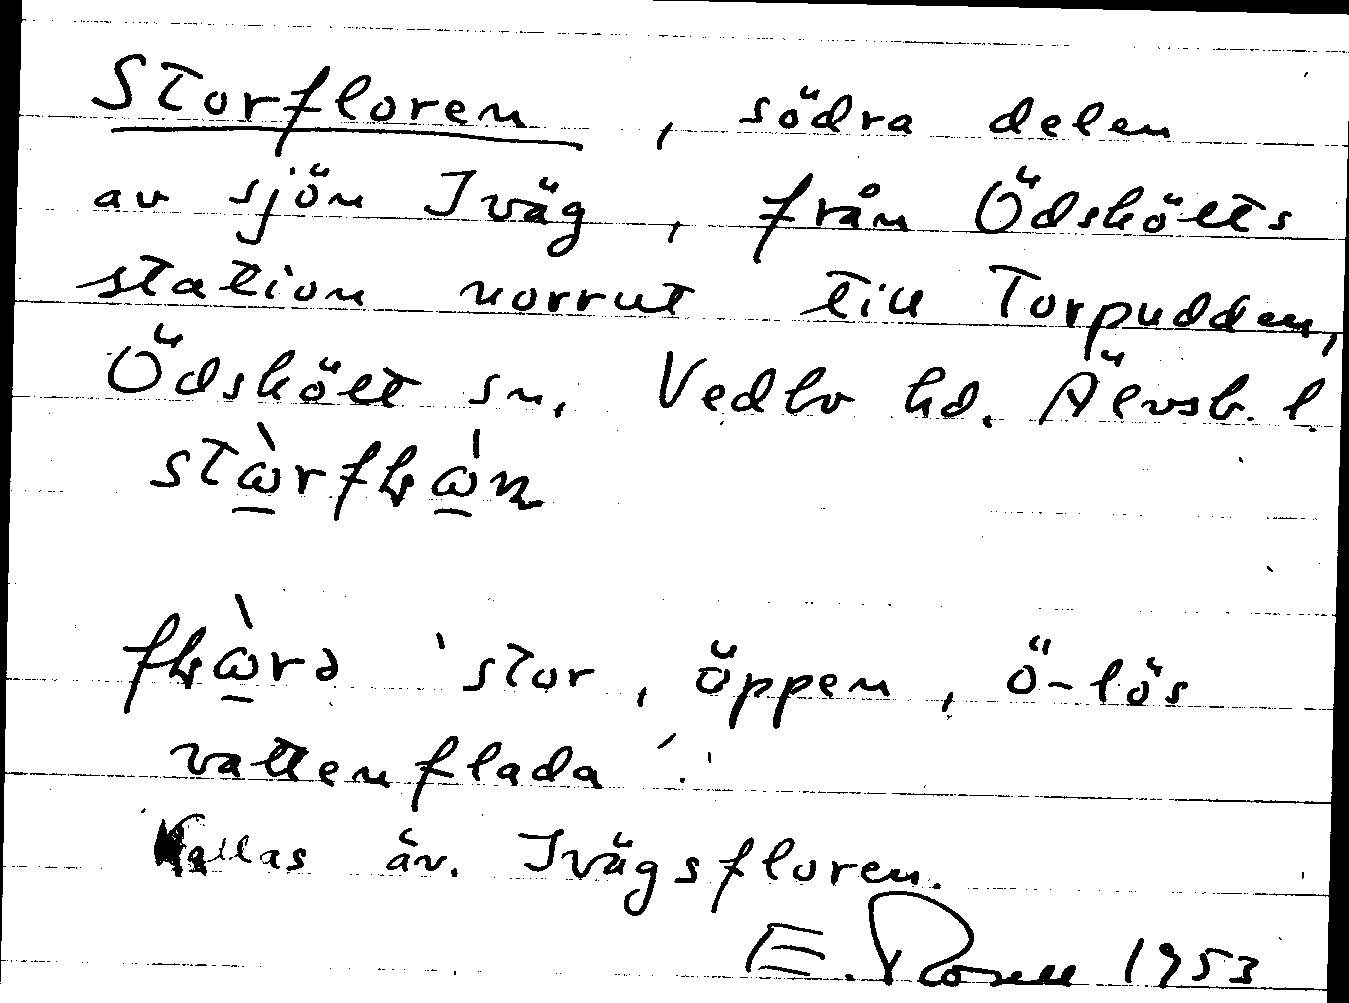 Storfloren, södra delen
av sjön Iväg, från Ödskölts
station norrut till Torpudden,
Ödskölt sn, Vedbo hd. Älvsb. l.
stor, öppen, ö-lös
vattenflada
Kallas äv. Ivägsfloren.
E. Rosell 1953